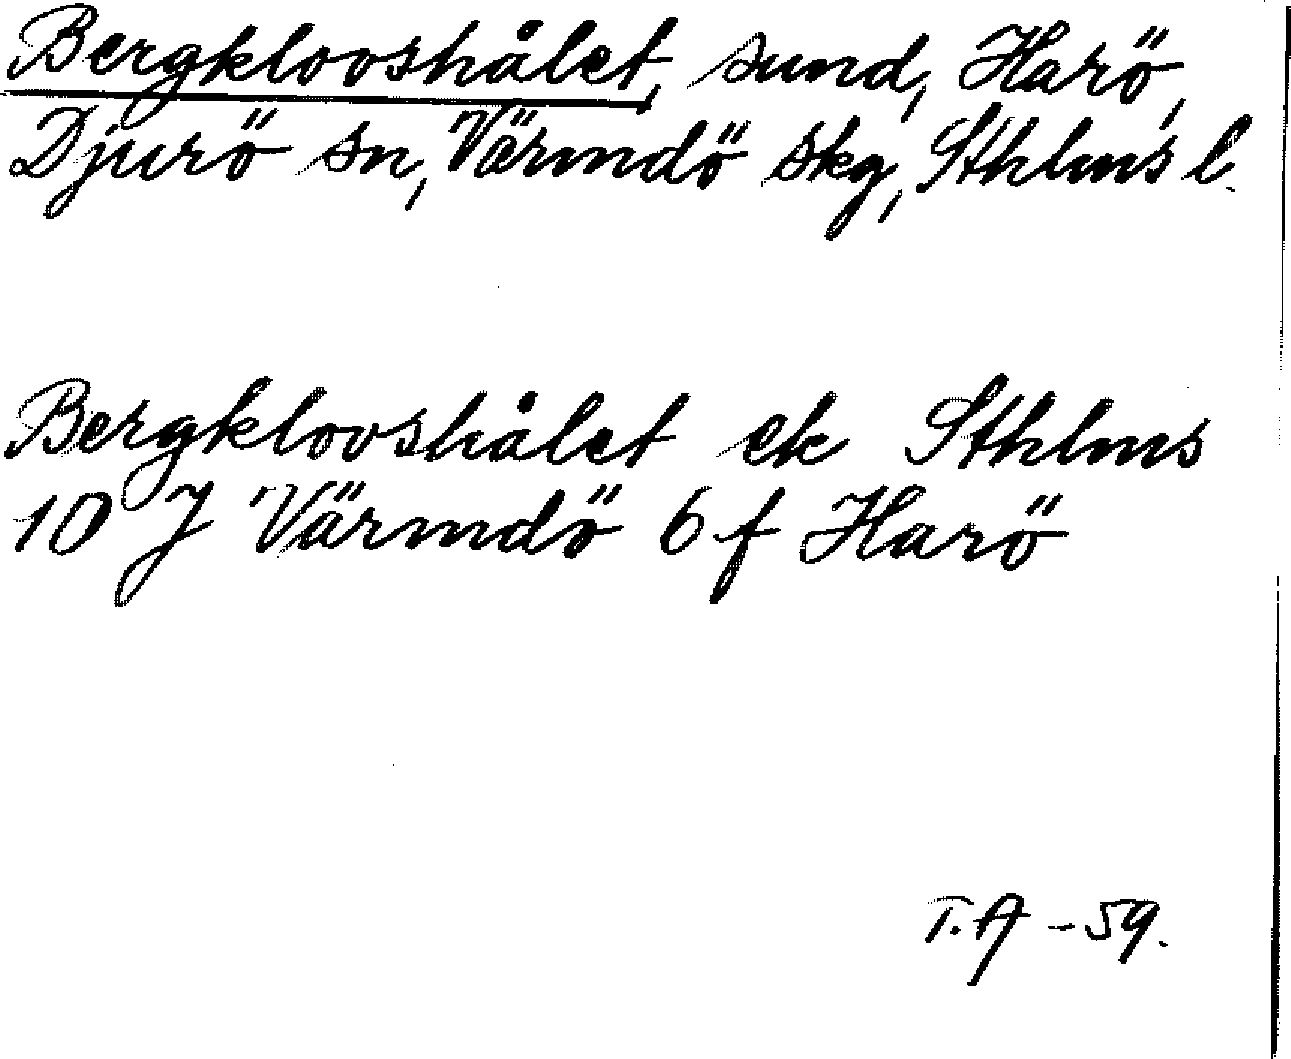 Bergklovshålet, sund, Harö,
Djurö sn, Värmdö skg, Sthlms l.
Bergklovshålet ek Sthlms
10 J Värmdö 6 f Harö
T.A -59.